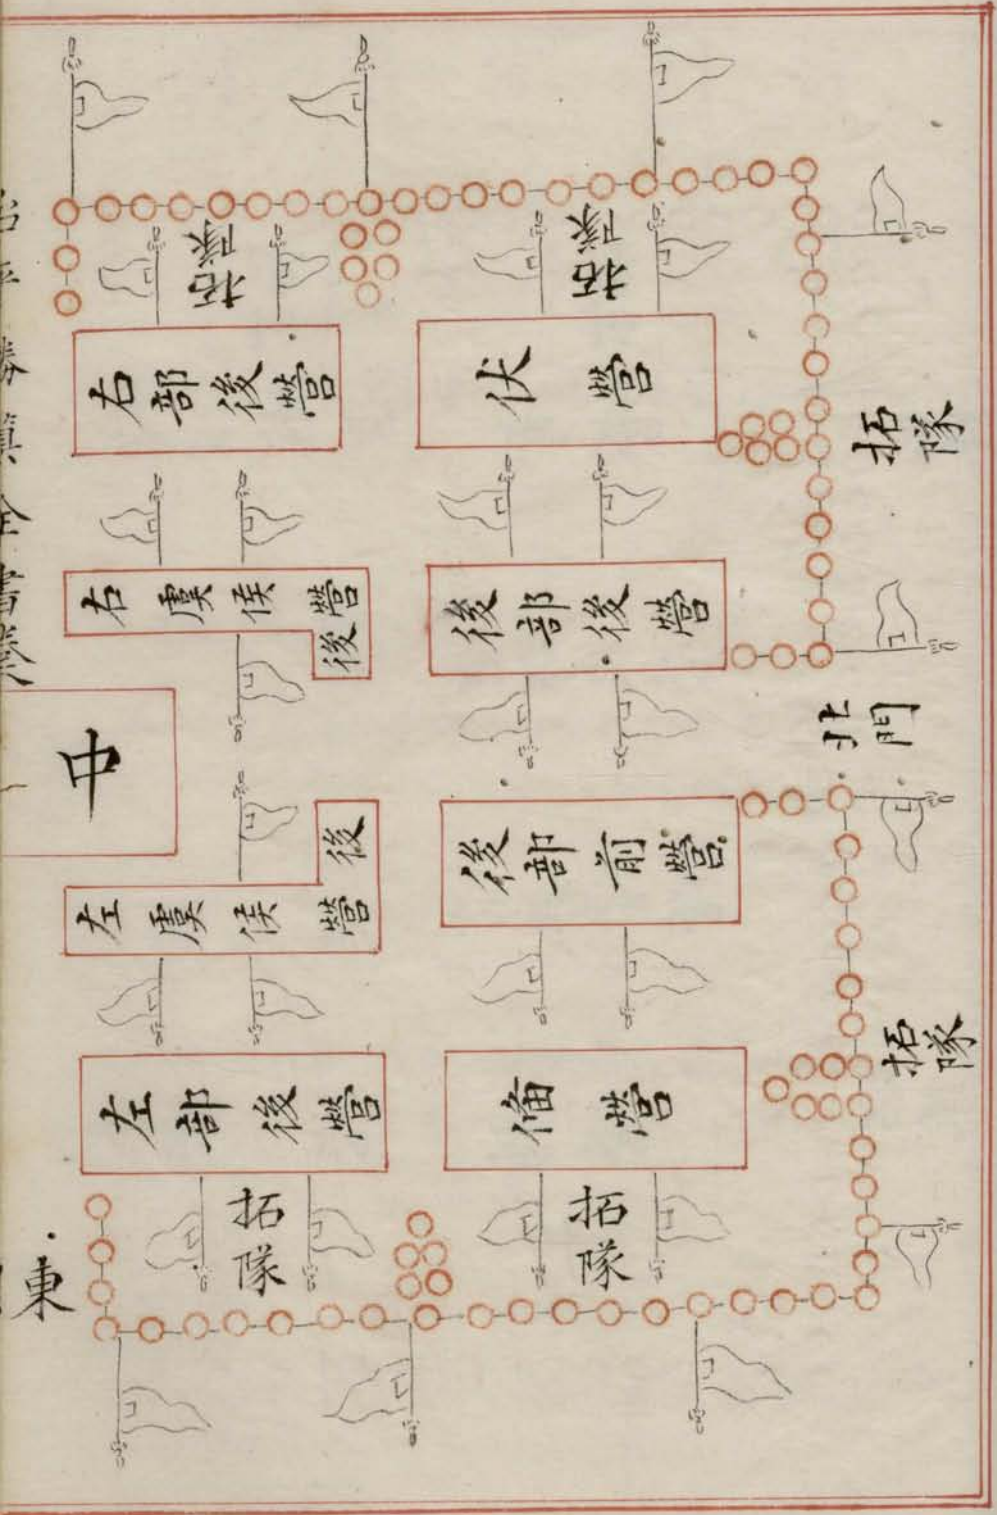 拓隊
拓隊
右部後營
伏營
拓隊
右虞侯營後
後部後營
北門
中
後左虞侯營
後部前營
拓隊
左部後營
偹營
拓隊
拓隊
東